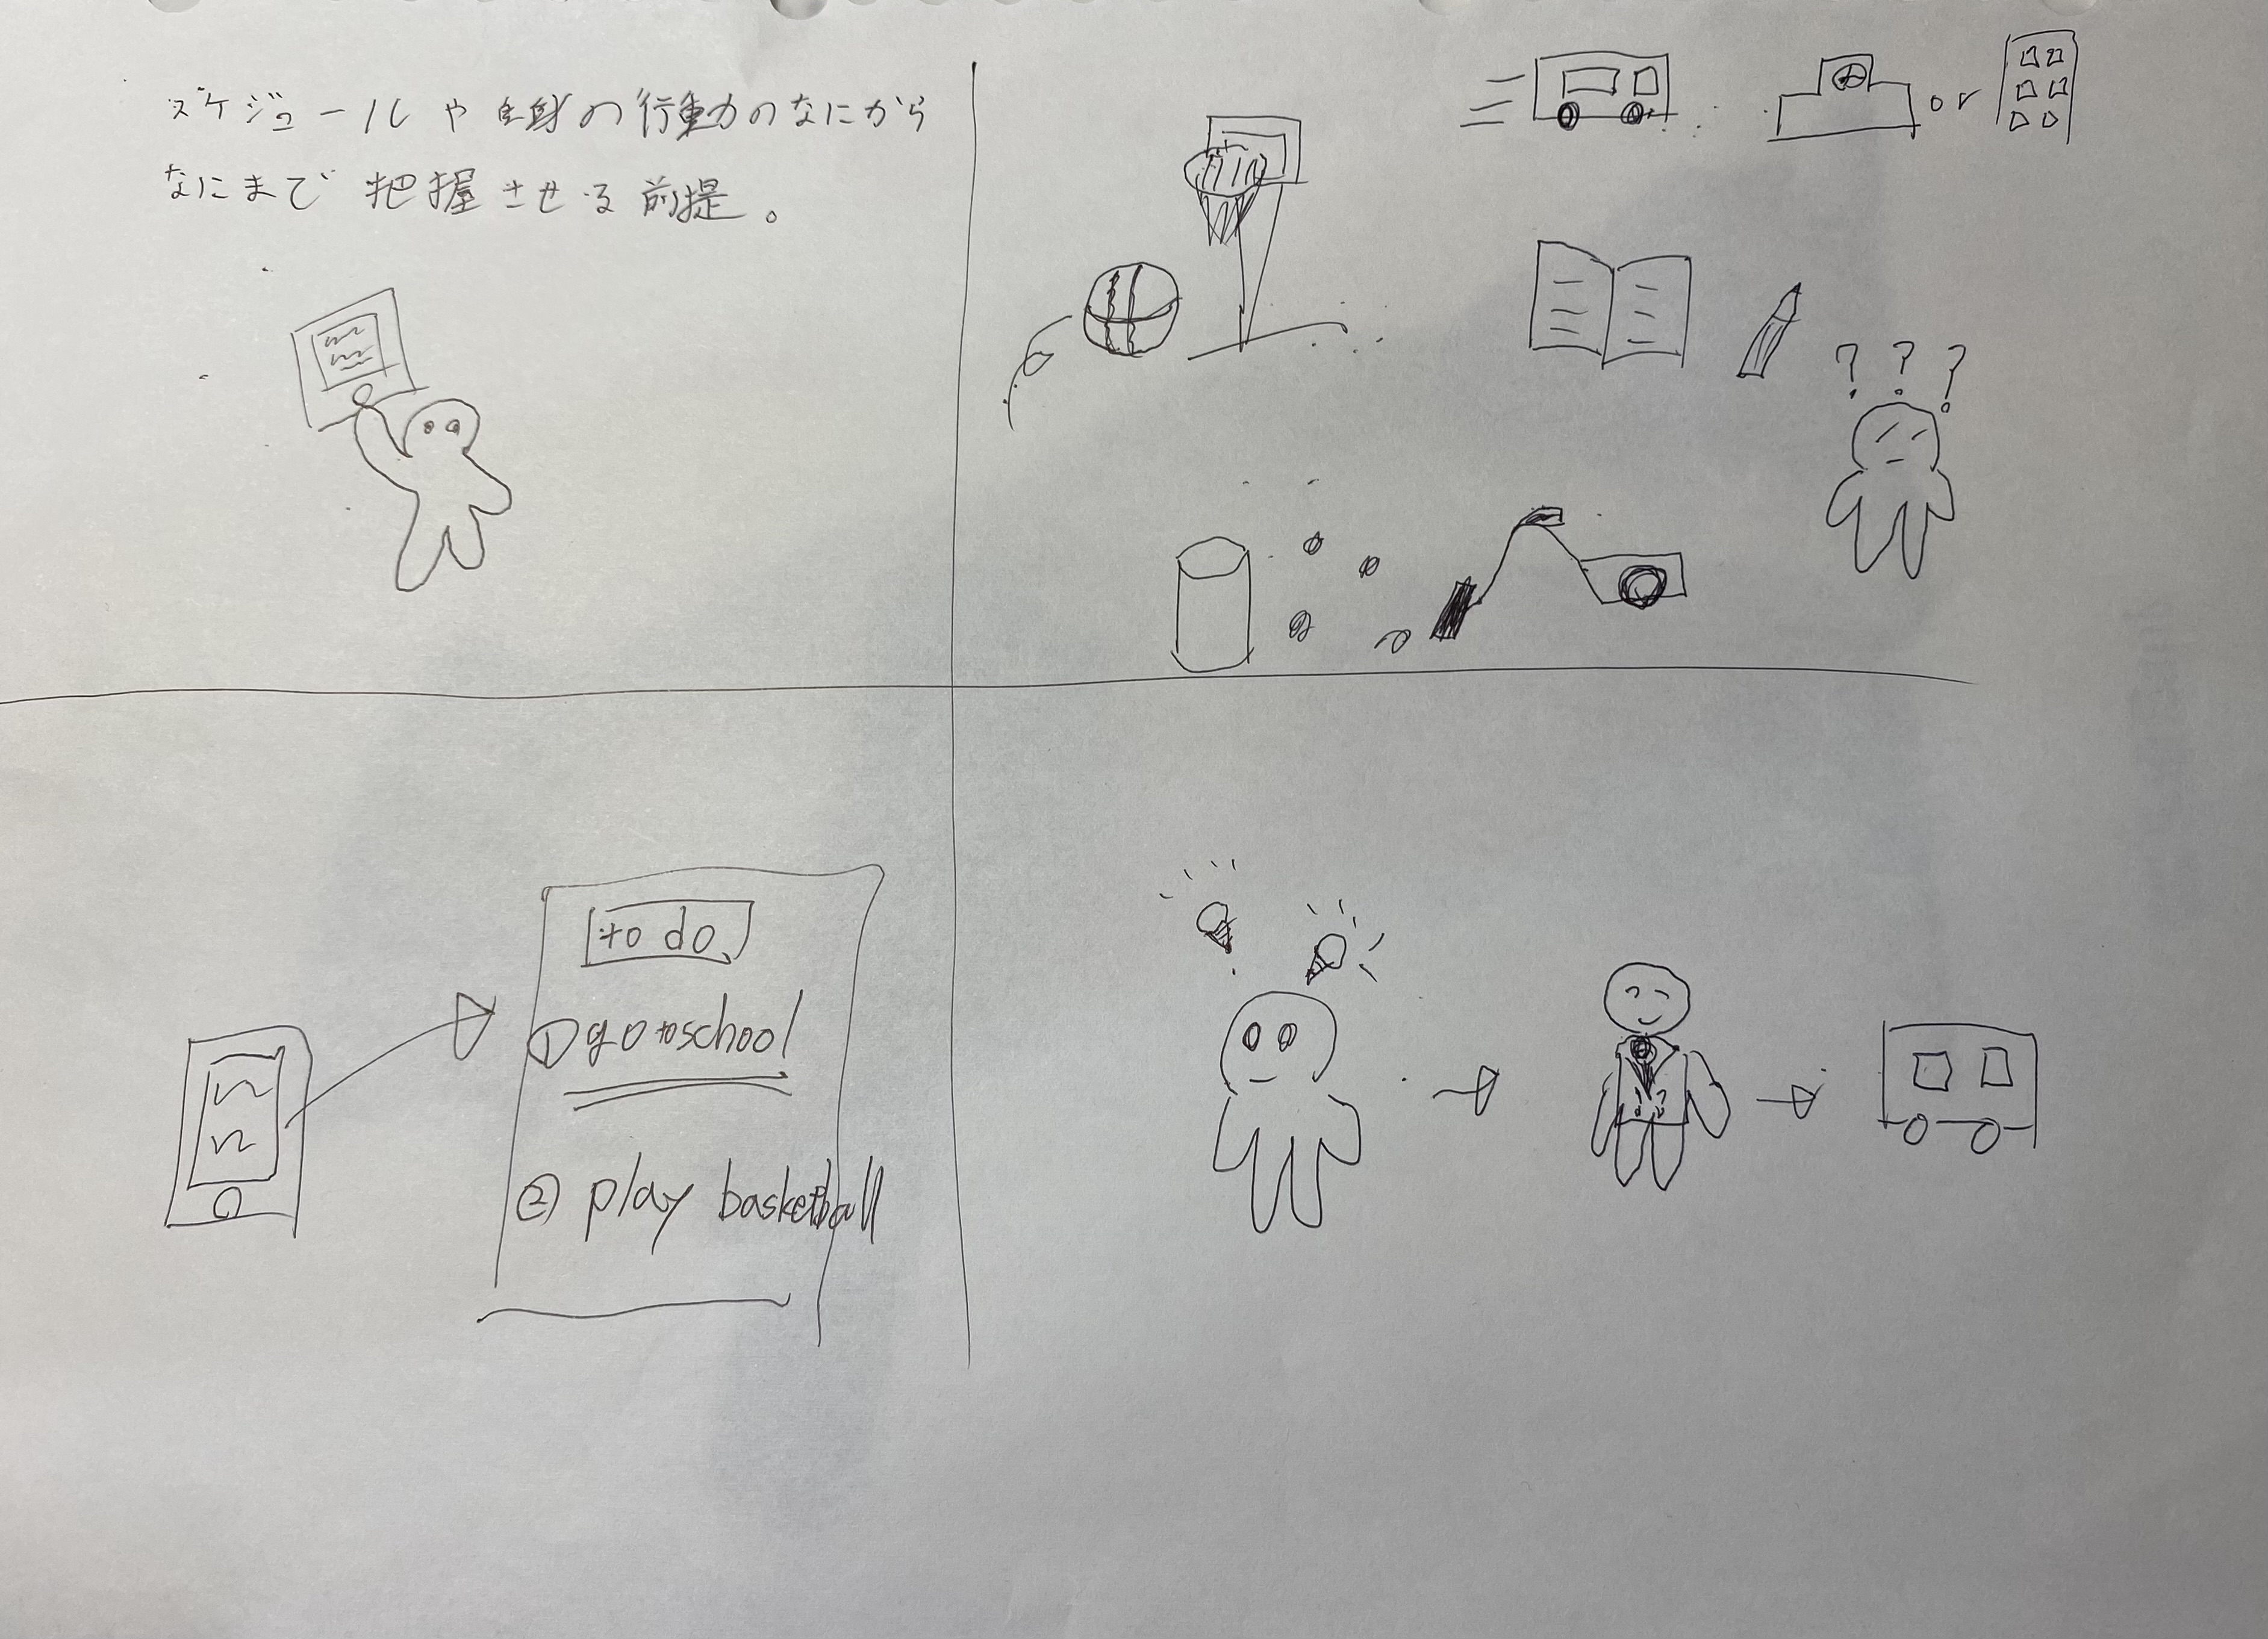 スケジュールや自身の行動のなにから
なにまで把握させる前提。
or
? ? ?
to do
①go to school
② play basketball